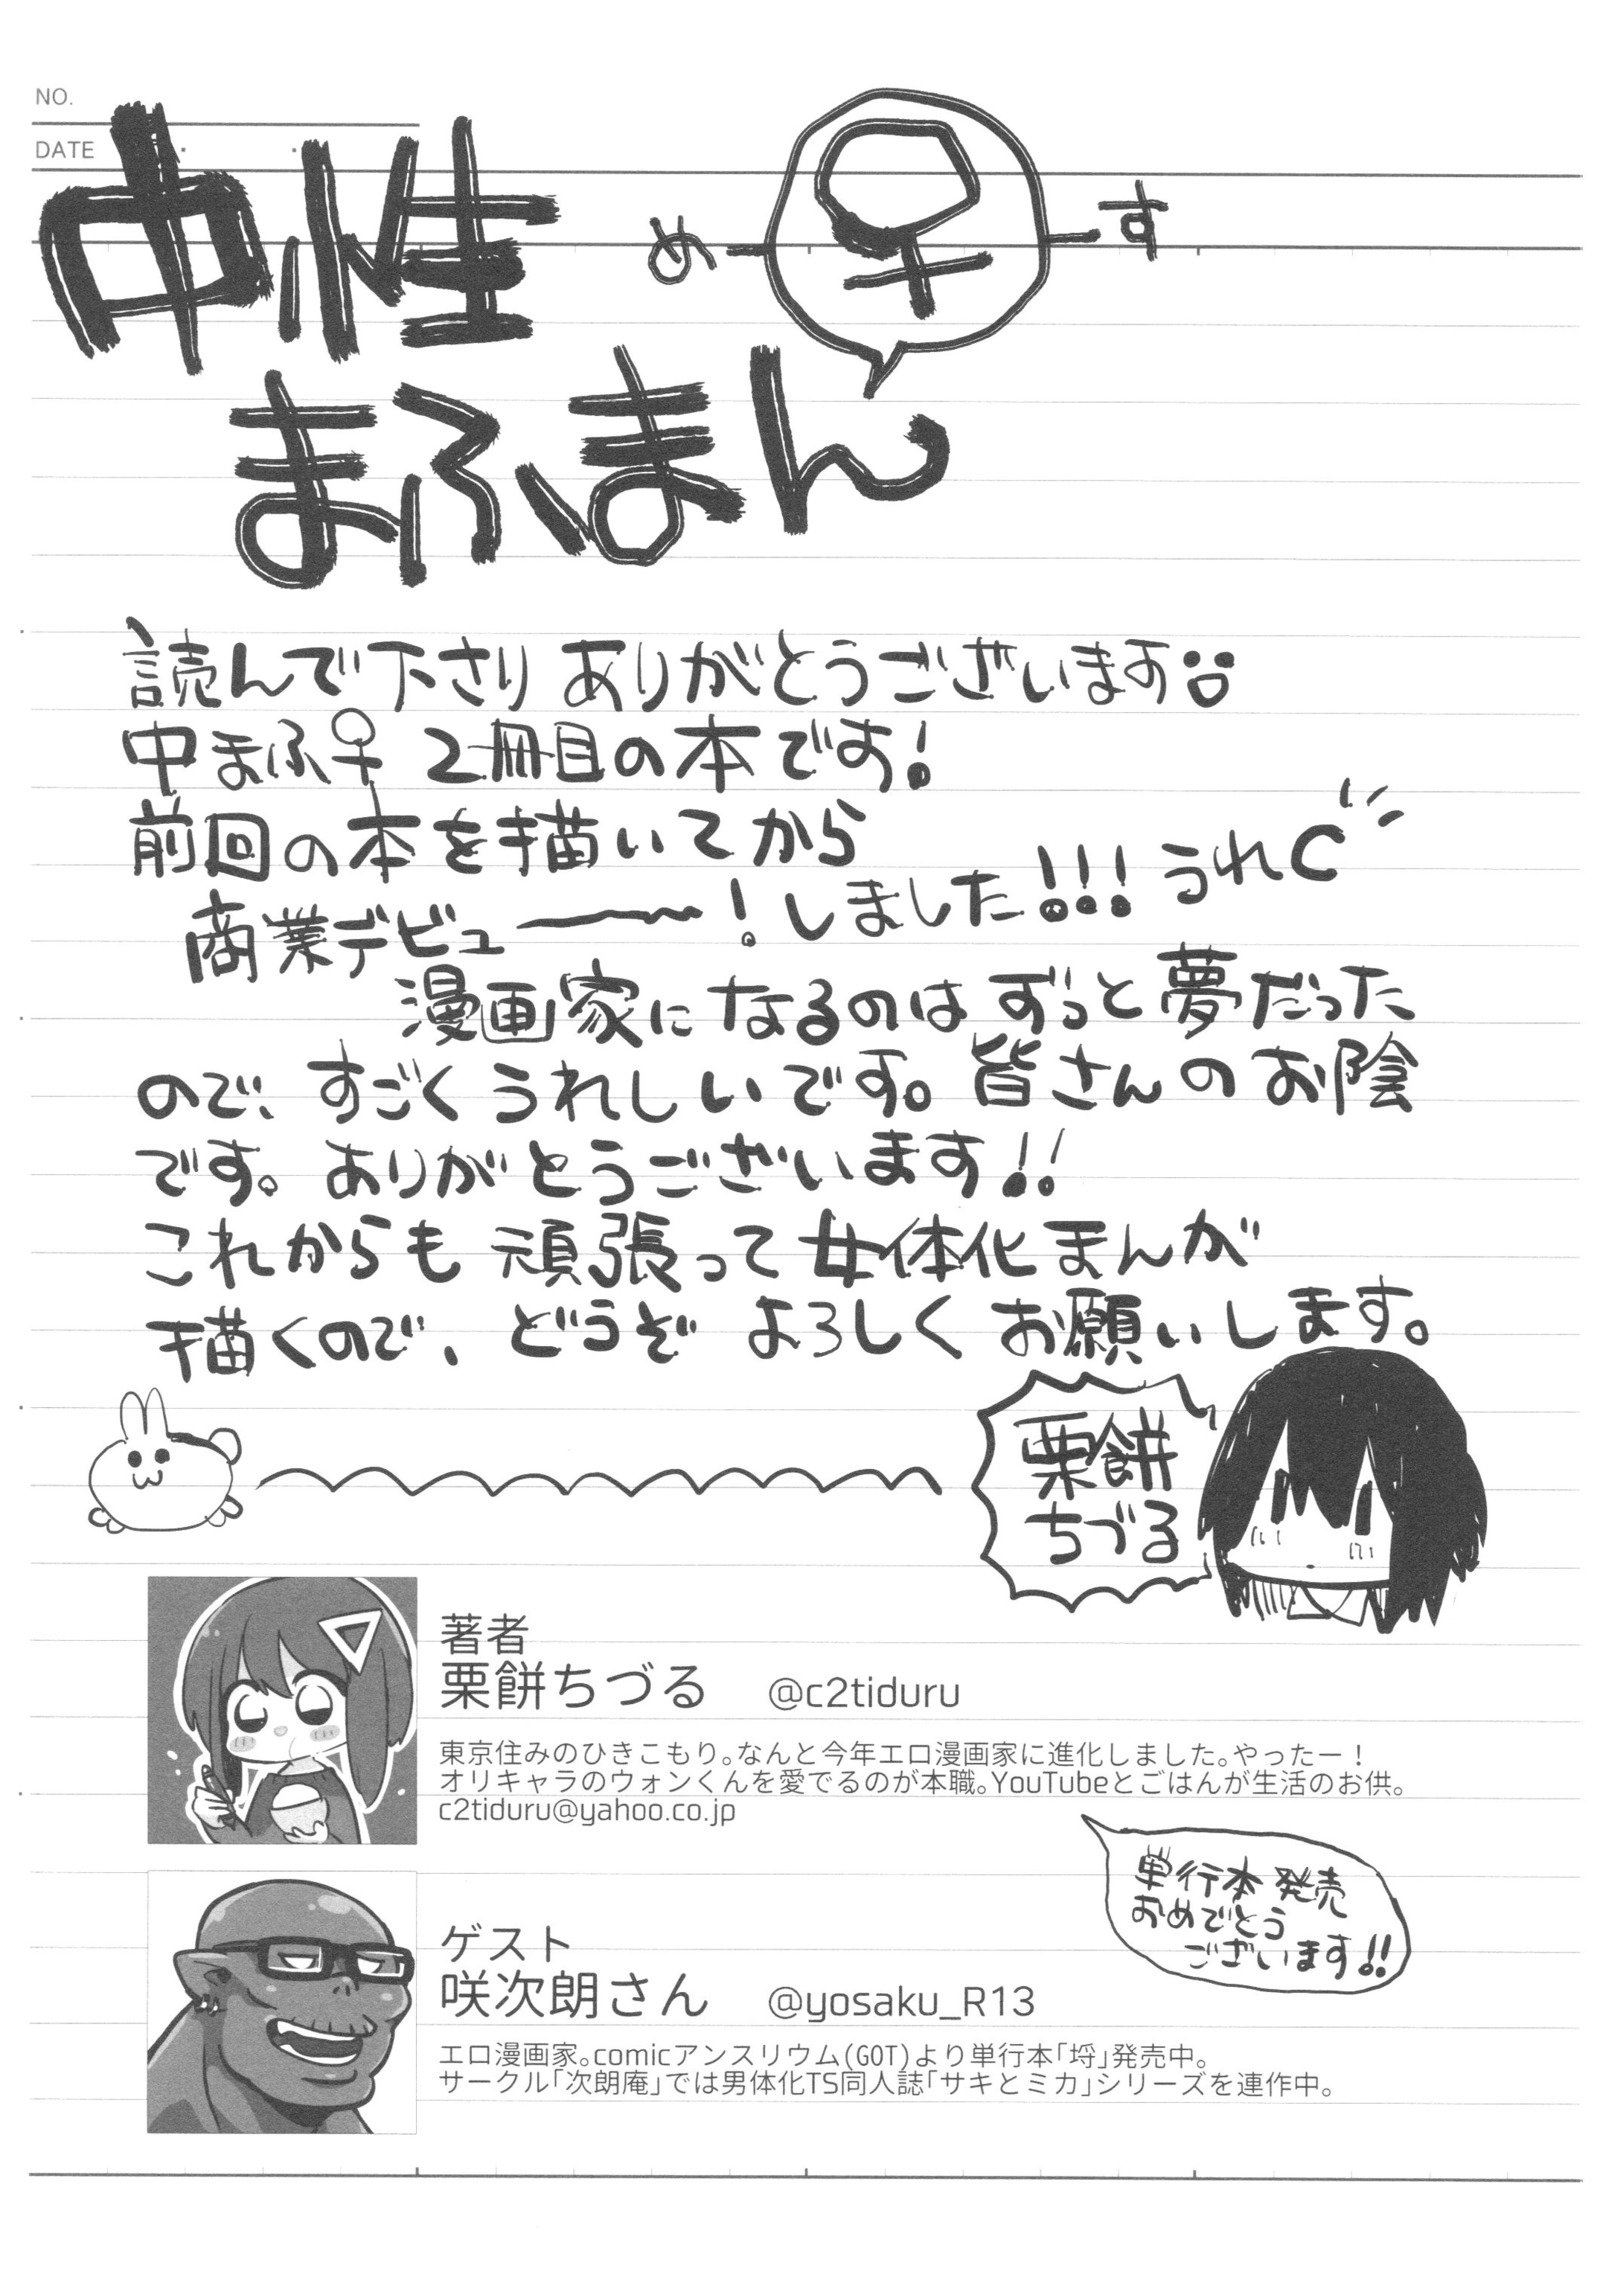 NO.
DATE
中性
め
♀
す
まふまん
読んで下さり ありがとうございます
中まふ♀ 2冊目の本です!
前回の本を描いてから
商業デビュー〜!しました!!! うれC
漫画家になるのは ずっと夢だった
ので、すごくうれしいです。皆さんのお陰
です。ありがとうございます!!
これからも 頑張って 女体化まんが
描くので、どうぞ よろしく お願いします。
栗餅
ちづる
著者
栗餅ちづる @c2tiduru
東京住みのひきこもり。なんと今年エロ漫画家に進化しました。やったー!
オリキャラのウォンくんを愛でるのが本職。YouTubeとごはんが生活のお供。
c2tiduru@yahoo.co.jp
単行本 発売
おめでとう
ございます!!
ゲスト
咲次朗さん @yosaku_R13
エロ漫画家。comicアンスリウム(GOT)より単行本「埒」発売中。
サークル「次朗庵」では男体化TS同人誌「サキとミカ」シリーズを連作中。